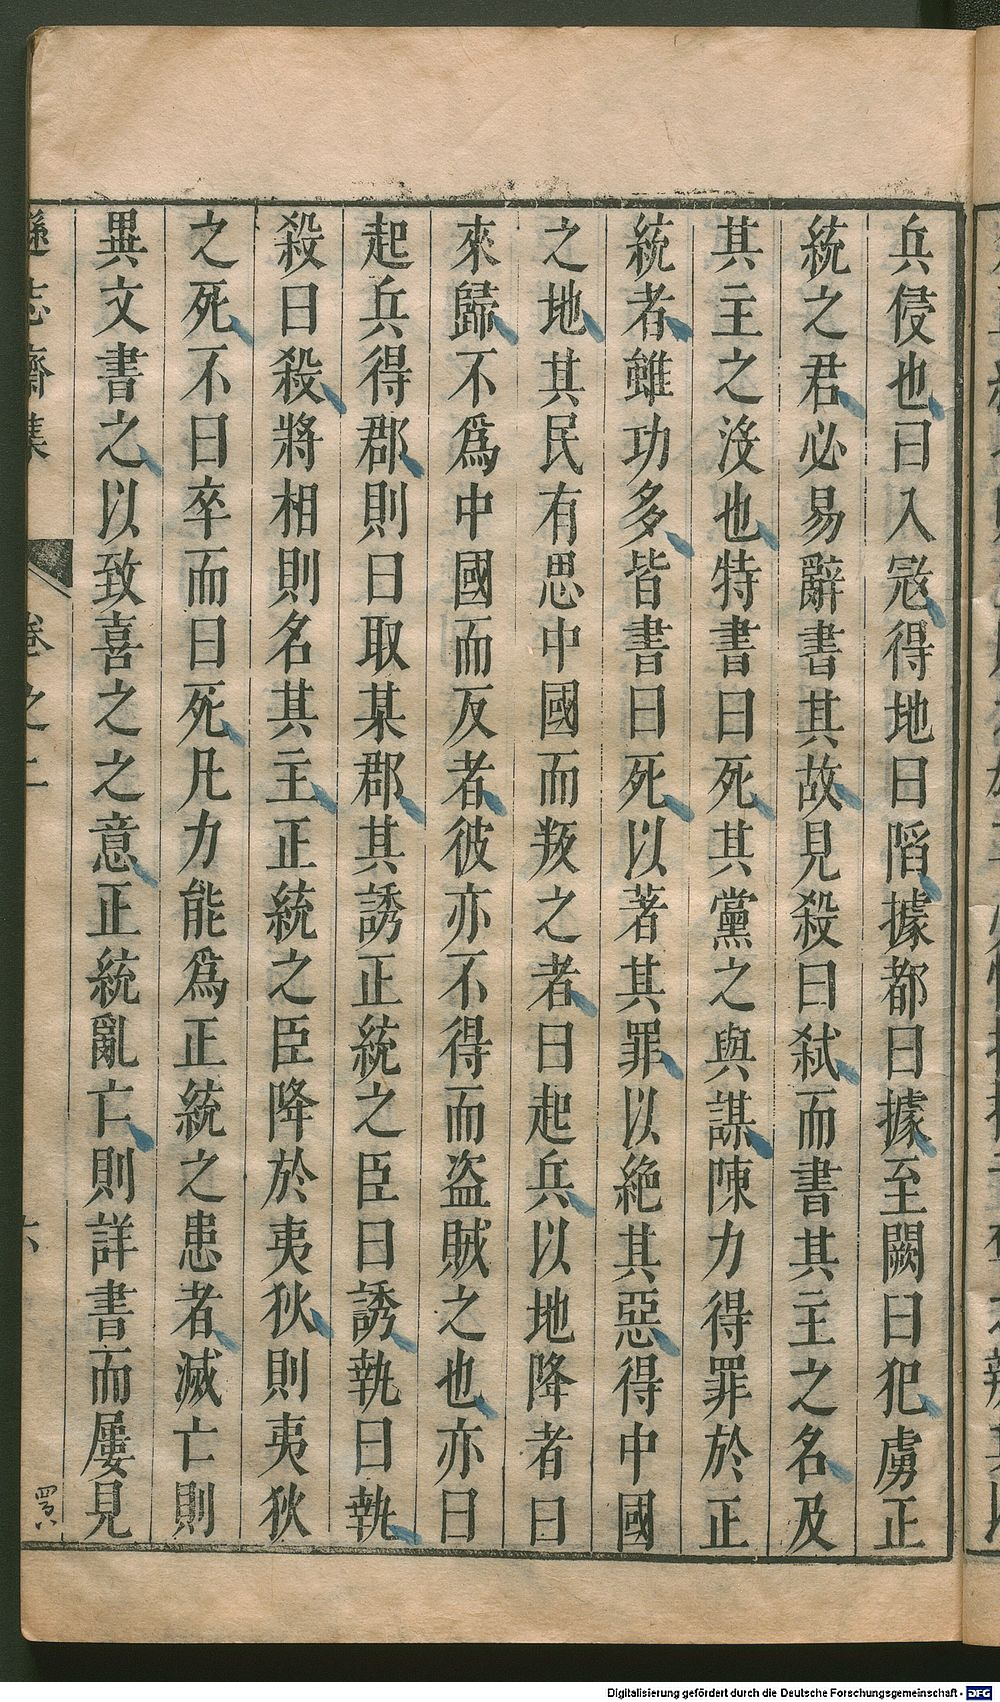 兵侵也曰入冦得地曰陷據都曰據至闕曰犯虜正
統之君必易辭書其故見殺曰弑而書其主之名及
其主之沒也特書曰死其黨之與謀陳力得罪於正
統者雖功多皆書曰死以著其罪以絕其惡得中國
之地其民有思中國而叛之者曰起兵以地降者曰
來歸不爲中國而反者彼亦不得而盗賊之也亦曰
起兵得郡則曰取某郡其誘正統之臣曰誘執曰執
殺曰殺將相則名其主正統之臣降於夷狄則夷狄
之死不曰卒而曰死凡力能爲正統之患者滅亡則
異文書之以致喜之之意正統亂亡則詳書而屢見
遜志齋集 卷之二 六
Digitalisierung gefördert durch die Deutsche Forschungsgemeinschaft - DFG